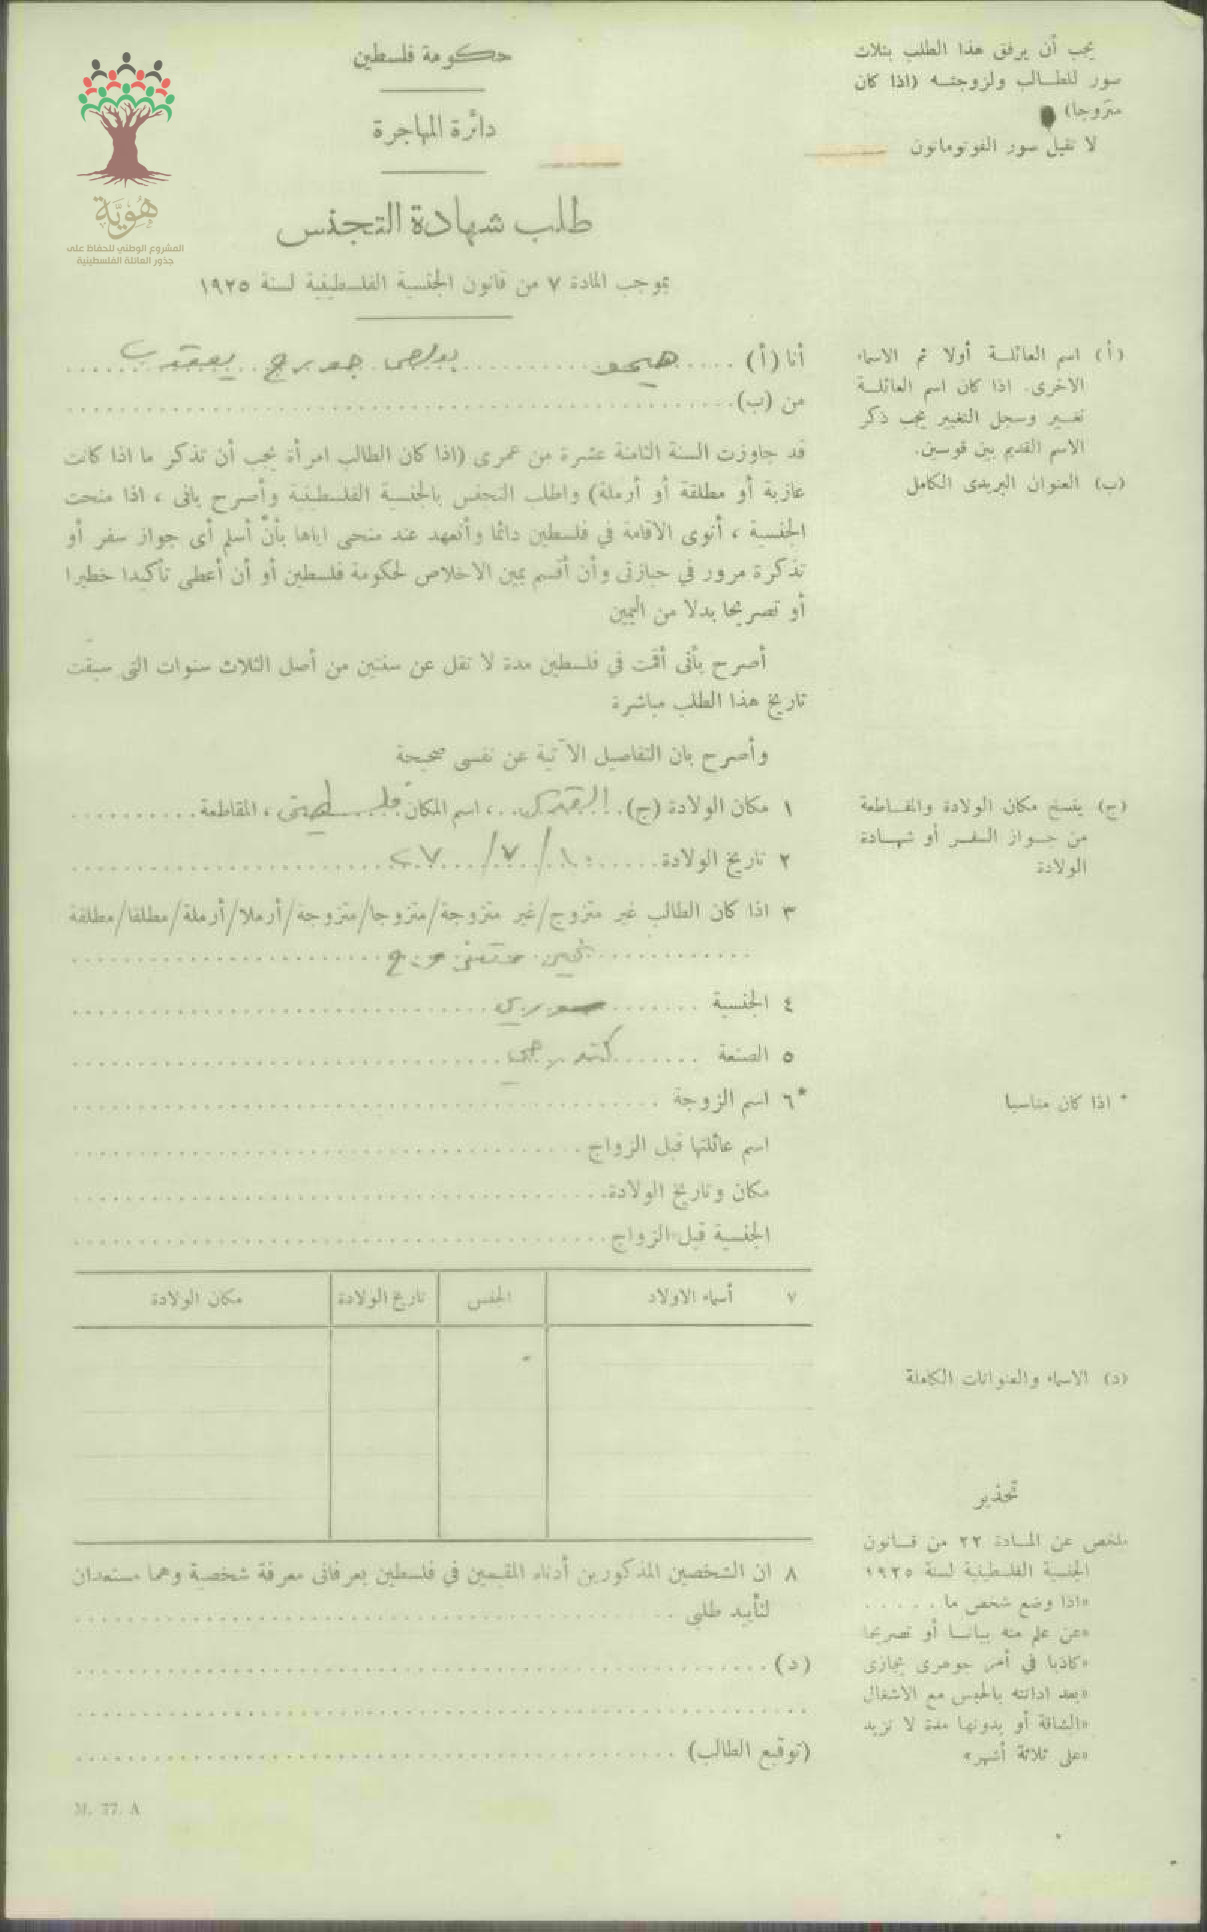 هوية
المشروع الوطني للحفاظ على
جذور العائلة الفلسطينية
حكومة فلسطين
دائرة المهاجرة
طلب شهادة التجنس
بموجب المادة ٧ من قانون الجنسية الفلسطينية لسنة ١٩٢٥
يجب أن يرفق هذا الطلب بثلاث
صور للطالب ولزوجته (اذا كان
متزوجا)
لا تقبل صور الفوتوماتون
أنا (أ) بولص جورج يعقوب
من (ب)
قد جاوزت السنة الثامنة عشرة من عمرى (اذا كان الطالب امرأة يجب أن تذكر ما اذا كانت
عازبة أو مطلقة أو أرملة) واطلب التجنس بالجنسية الفلسطينية وأصرح بانى ، اذا منحت
الجنسية ، أنوى الاقامة في فلسطين دائما وأتعهد عند منحى اياها بأن أسلم أى جواز سفر أو
تذكرة مرور في حيازتى وأن أقسم يمين الاخلاص لحكومة فلسطين أو أن أعطى تأكيدا خطيرا
أو تصريحا بدلا من اليمين
أصرح بأنى أقمت في فلسطين مدة لا تقل عن سنتين من أصل الثلاث سنوات التى سبقت
تاريخ هذا الطلب مباشرة
وأصرح بان التفاصيل الآتية عن نفسى صحيحة
١ مكان الولادة (ج) القدس ، اسم المكان ، المقاطعة
٢ تاريخ الولادة ١٠/٧/٢٧
٣ اذا كان الطالب غير متزوج/غير متزوجة/متزوجا/متزوجة/أرملا/أرملة/مطلقا/مطلقة
غير متزوج
٤ الجنسية سوري
٥ الصنعة كندرجي
*٦ اسم الزوجة
اسم عائلتها قبل الزواج
مكان وتاريخ الولادة
الجنسية قبل الزواج
٧ أسماء الاولاد الجنس تاريخ الولادة مكان الولادة
٨ ان الشخصين المذكورين أدناه المقيمين في فلسطين يعرفانى معرفة شخصية وهما مستعدان
لتأييد طلبى
(د)
(توقيع الطالب)
M. 77. A
(أ) اسم العائلة أولا ثم الاسماء
الاخرى. اذا كان اسم العائلة
تغير وسجل التغيير يجب ذكر
الاسم القديم بين قوسين.
(ب) العنوان البريدى الكامل
(ج) ينسخ مكان الولادة والمقاطعة
من جواز السفر أو شهادة
الولادة
* اذا كان مناسبا
(د) الاسماء والعنوانات الكاملة
تحذير
ملخص عن المادة ٢٢ من قانون
الجنسية الفلسطينية لسنة ١٩٢٥
«اذا وضع شخص ما . . . . .
«عن علم منه بيانا أو تصريحا
«كاذبا في أمر جوهرى يجازى
«بعد ادانته بالحبس مع الاشغال
«الشاقة أو بدونها مدة لا تزيد
«على ثلاثة أشهر»